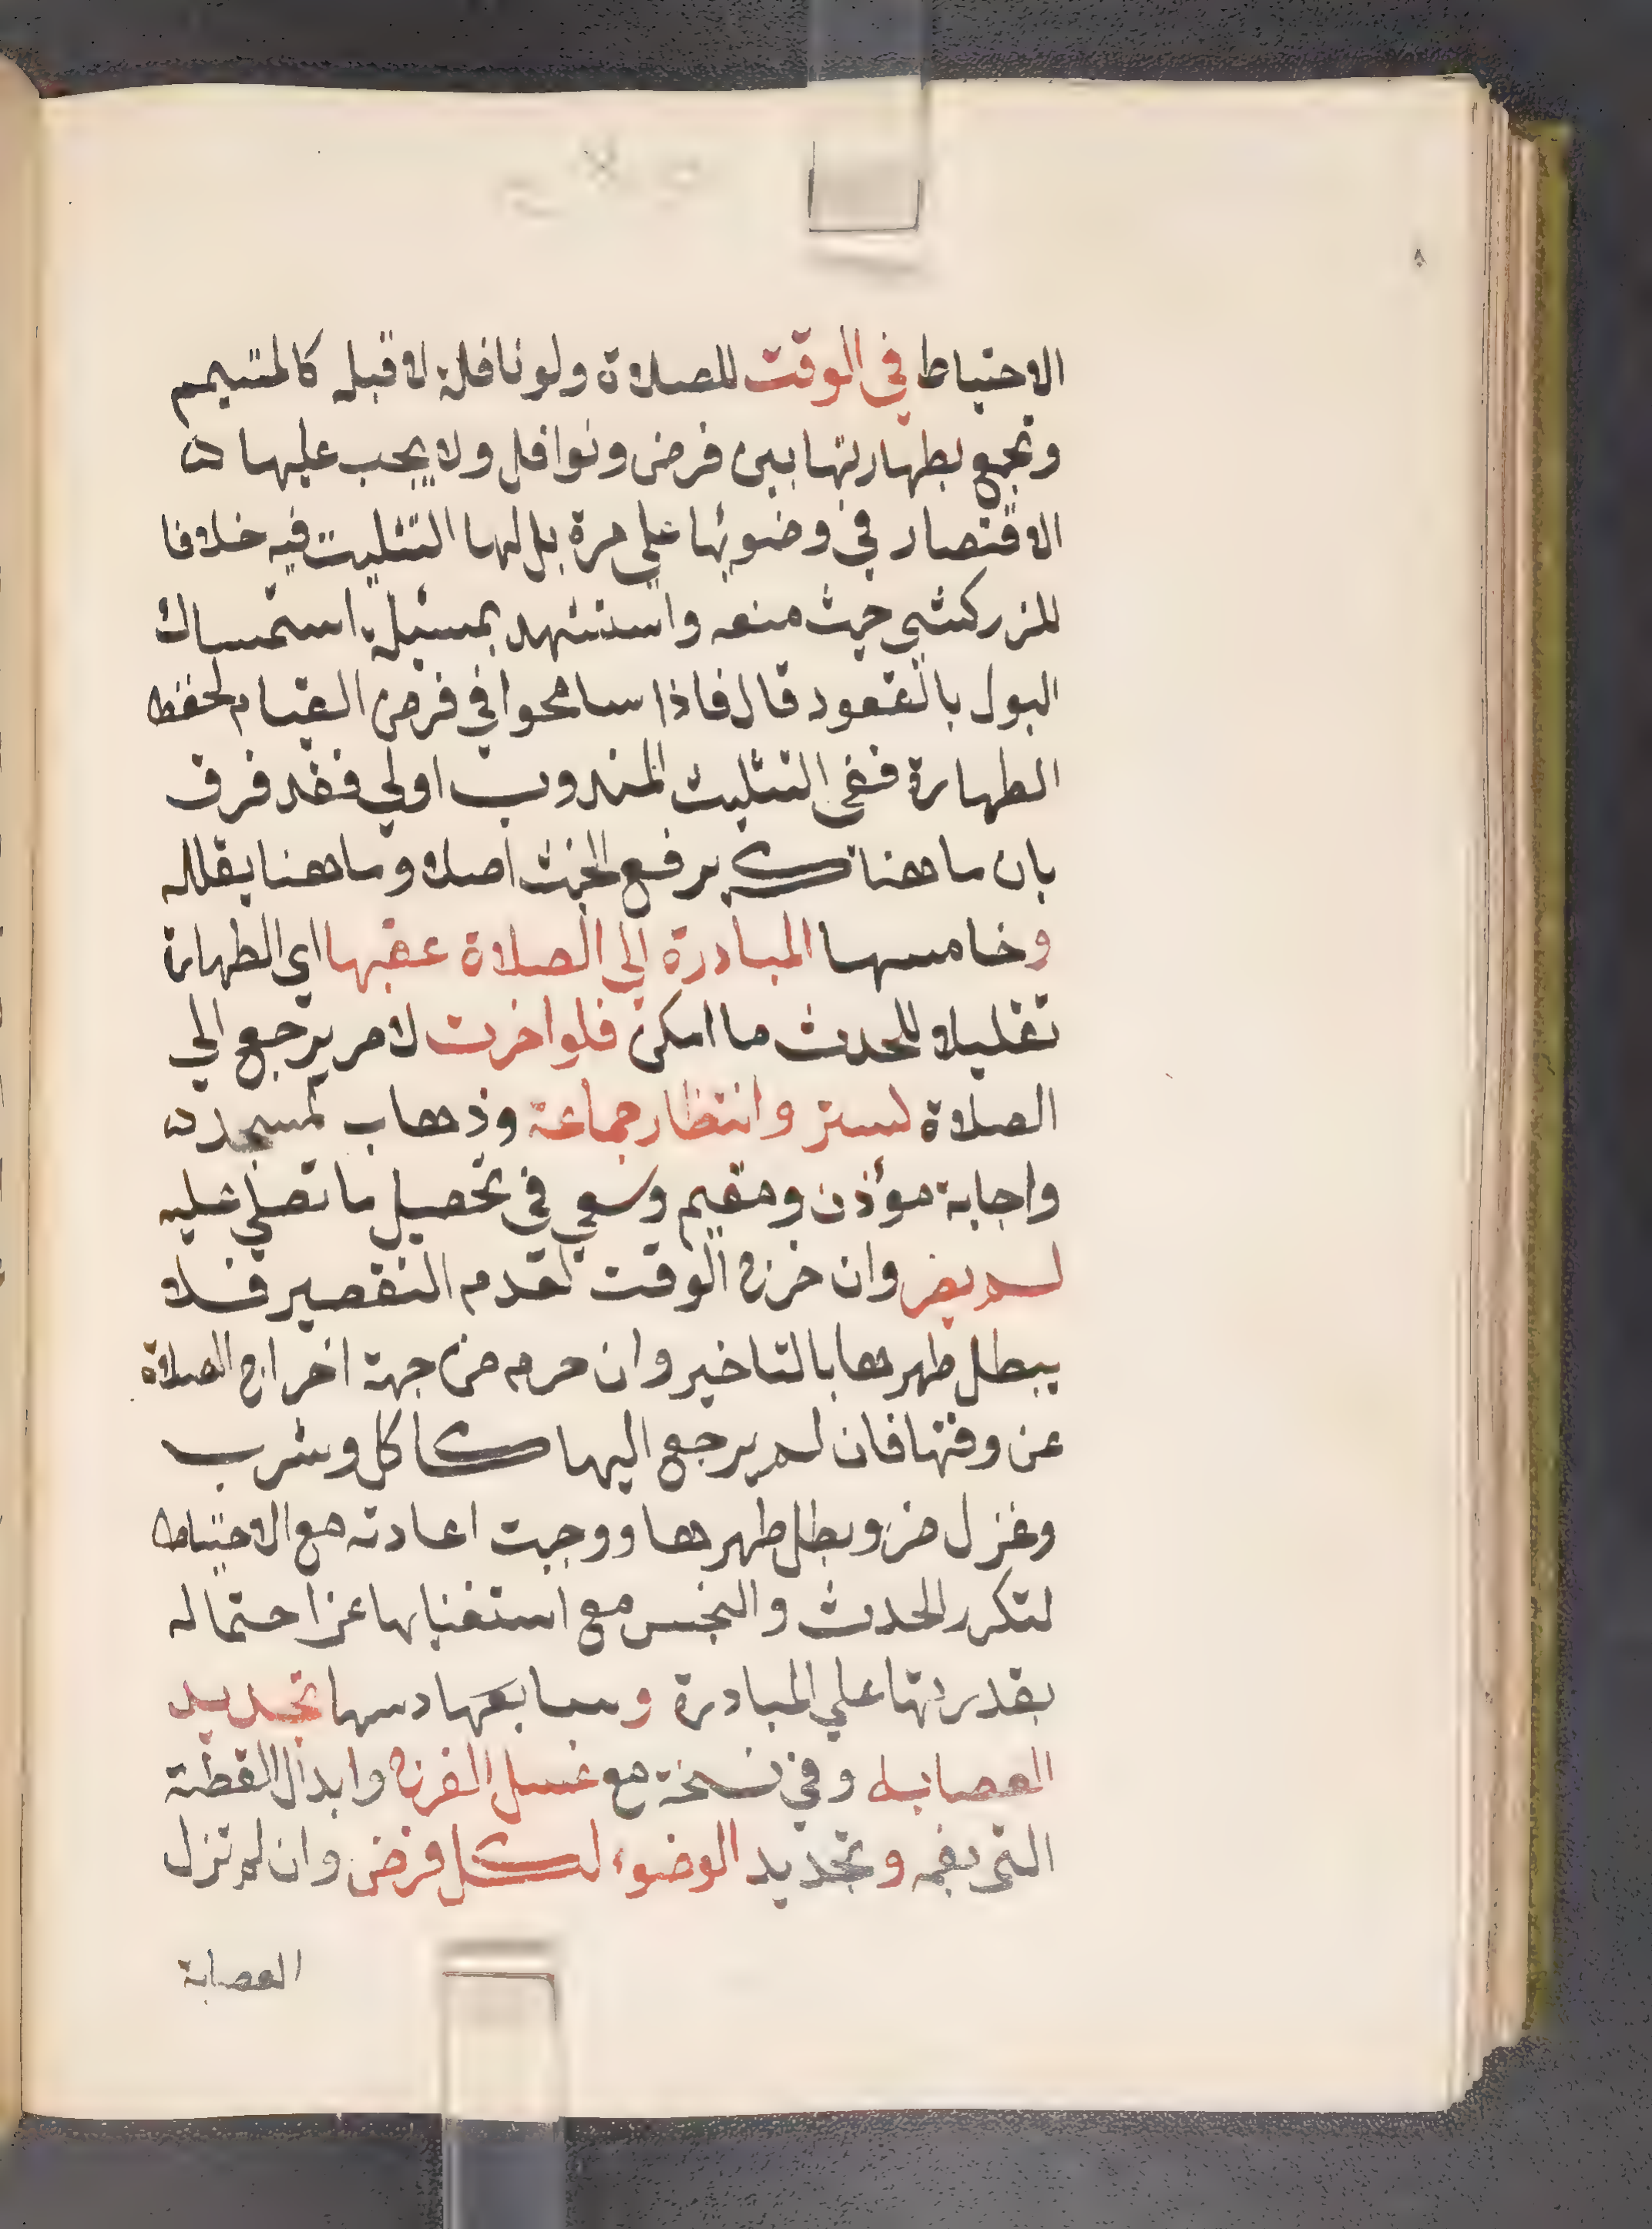 ٨
الاحتياط في الوقت للصلاة ولو نافلة لا قبله كالمتيمم
وتجمع بطهارتها بين فرض ونوافل ولا يجب عليها ه
الاقتصار في وضوئها علي مرة بل لها التثليث فيه خلافا
للزركشي حيث منعه واستشهد بمسئلة استمساك
البول بالقعود قال فاذا سامحوا في فرض القيام لحفظ
الطهارة ففي التثليث المندوب اولي فقد فرق
بان ما هناك يرفع الخبث اصلا وما هنا يقلله
وخامسها المبادرة الي الصلاة عقبها اي الطهارة
تقليلا للحدث ما امكن فلو اخرت لامر يرجع الي
الصلاة لستر وانتظار جماعة وذهاب لمسجد ه
واجابة مؤذن ومقيم وسعي في تحصيل ما تصلي عليه
لم يضر وان خرج الوقت لعدم التقصير فلا
يبطل طهرها بالتاخير وان حرم من جهة اخراج الصلاة
عن وقتها فان لم يرجع اليها كاكل وشرب
وغزل ضر وبطل طهرها ووجبت اعادته مع الاحتياط
لتكرر الحدث والنجس مع استغنايها عن احتماله
بقدرتها علي المبادرة وسابعها دسها تجديد
العصابه وفي نسخة مع غسل الفرج وابدال القطنة
التي بفمه وتجديد الوضوء لكل فرض وان لم تزل
العصابة